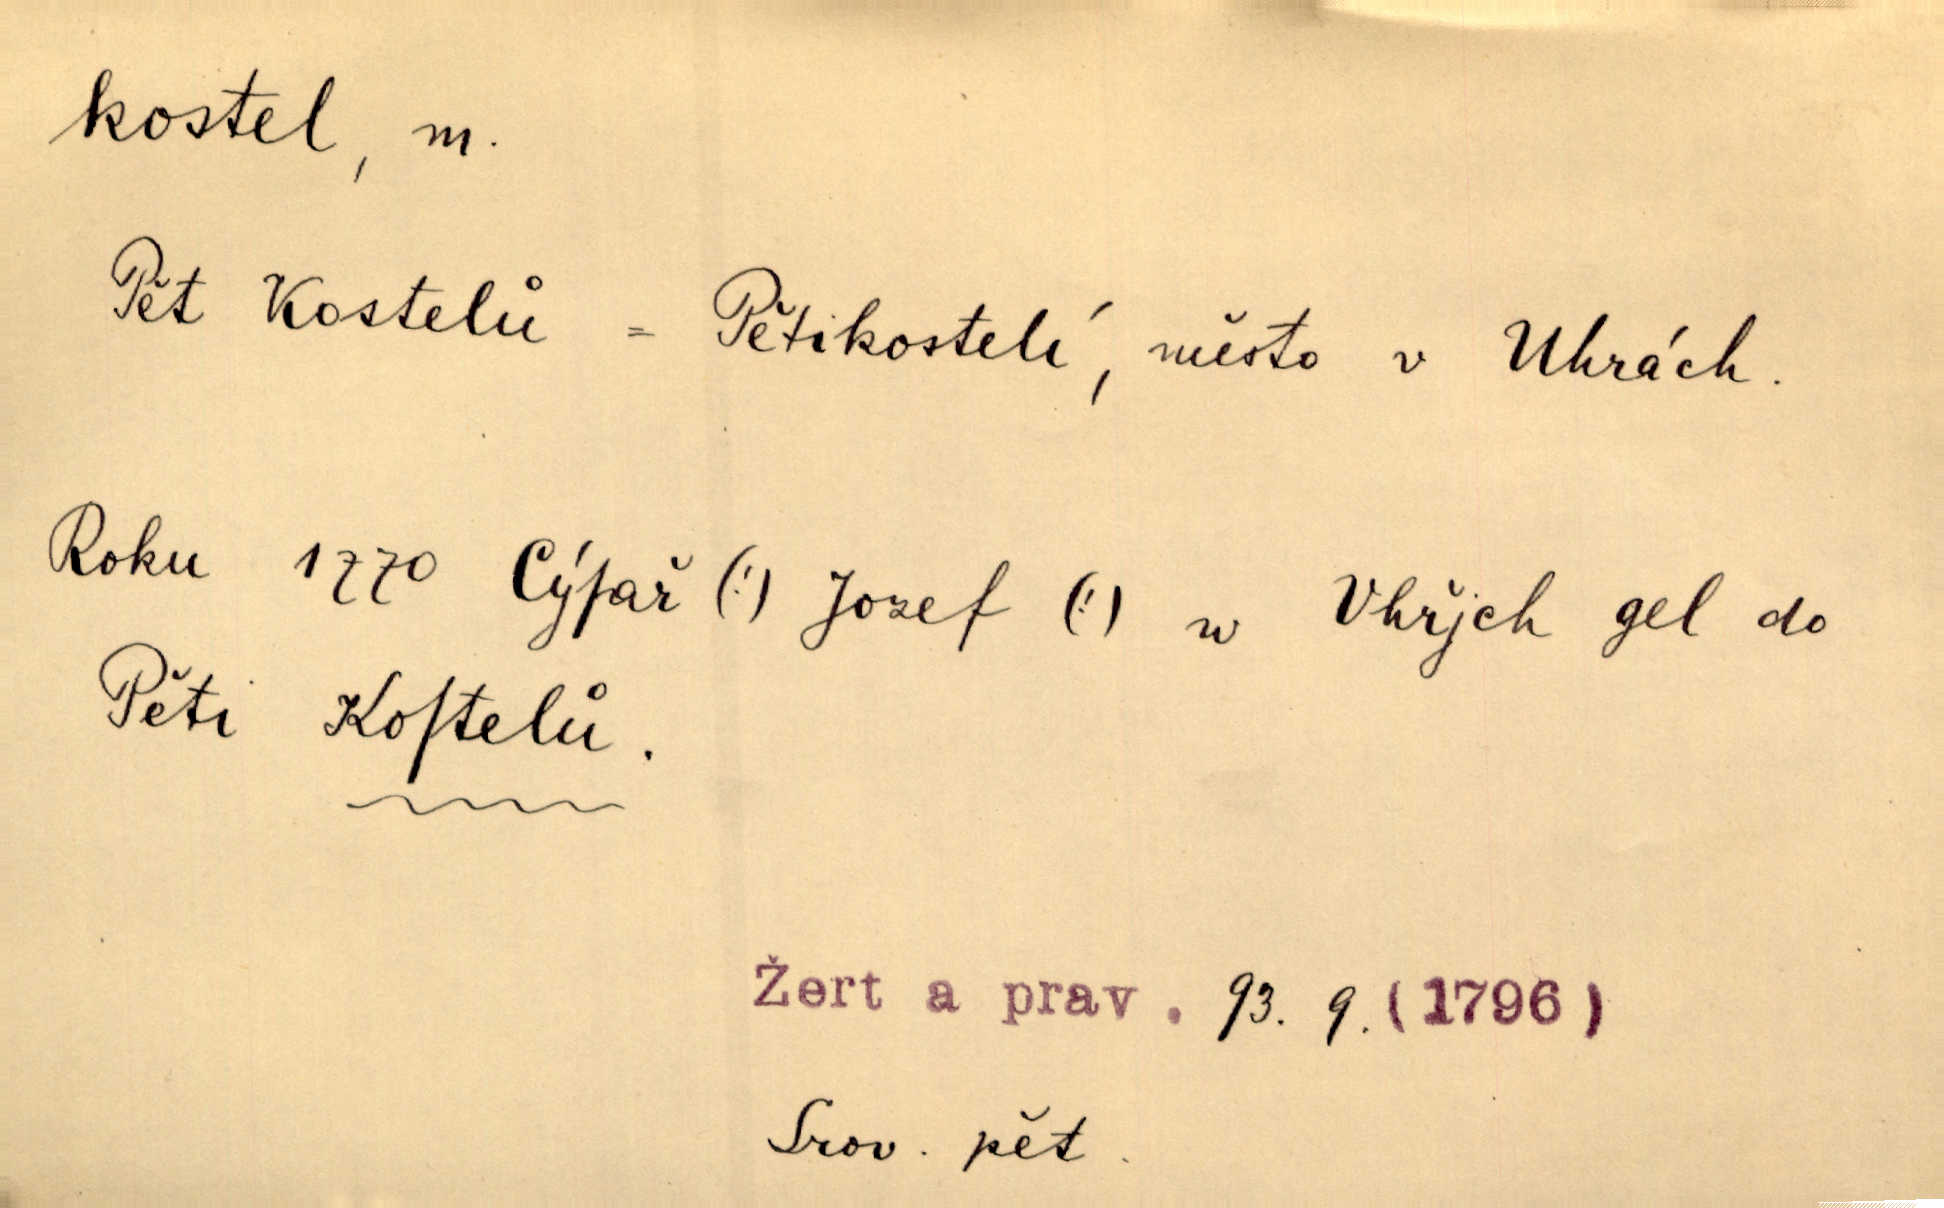 kostel, m.
Pět Kostelů = Pětikostelí, město v Uhrách.
Roku 1770 Cýſař (!) Jozef (!) w Vhřjch gel do
Pěti Koſtelů.
Žert a prav. 93. 9. (1796)
Srov. pět.